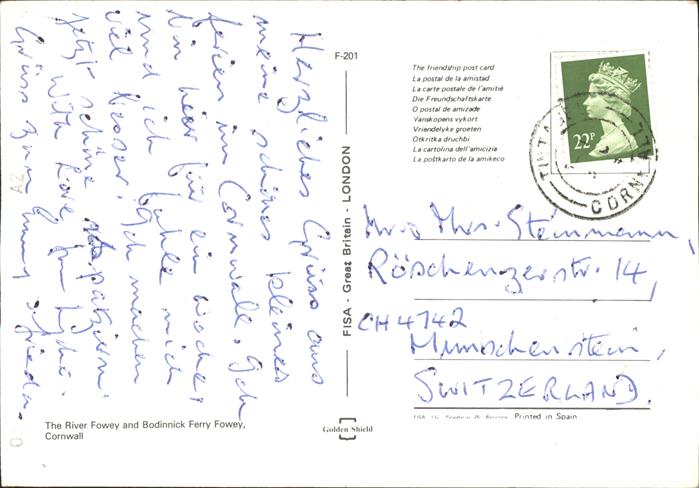 Herzliches Grüss aus
meine schönes kleines
ferien in Cornwall. Ich
bin hier für ein Woche,
und ich fühle mich
viel besser. Ich machen
jetzt schöne spatziern.
With love from
Grüss zum Hung + Frieda.
F-201
FISA - Great Britain - LONDON
The friendship post card
La postal de la amistad
La carte postale de l'amitié
Die Freundschaftskarte
O postal de amizade
Vanskopens vykort
Vriendelyke groeten
Otkritka druchbi
La cartolina dell'amicizia
La poŝtkarto de la amikeco
22P
CORNWALL
Mr & Mrs. Steinmann,
Röschenzerstr. 14,
CH 4142
Munschenstein,
SWITZERLAND.
Printed in Spain
The River Fowey and Bodinnick Ferry Fowey,
Cornwall
Golden Shield